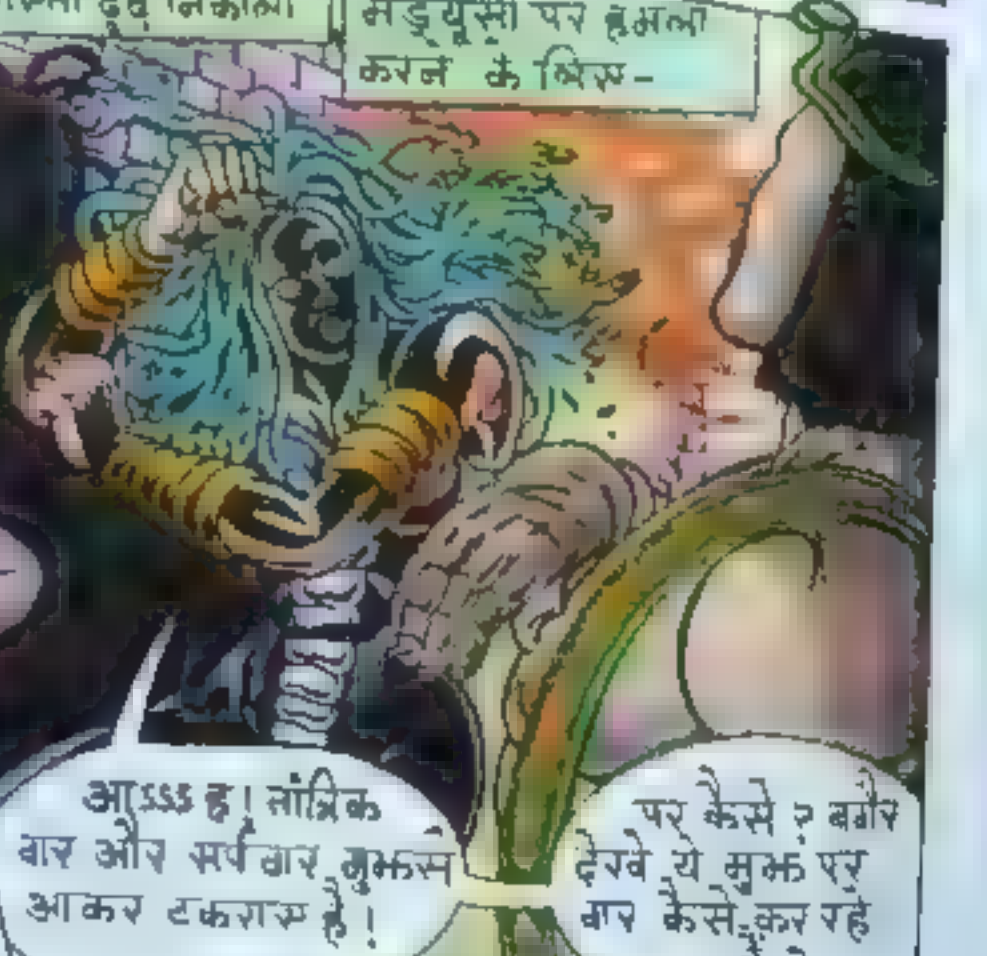 ढूंढ निकाला
मेड्यूसा पर हमला
करने के लिए-
आऽऽऽह! तांत्रिक
वार और सर्पवार मुझसे
आकर टकराए हैं!
पर कैसे? बगैर
देखे ये मुझ पर
वार कैसे कर रहे